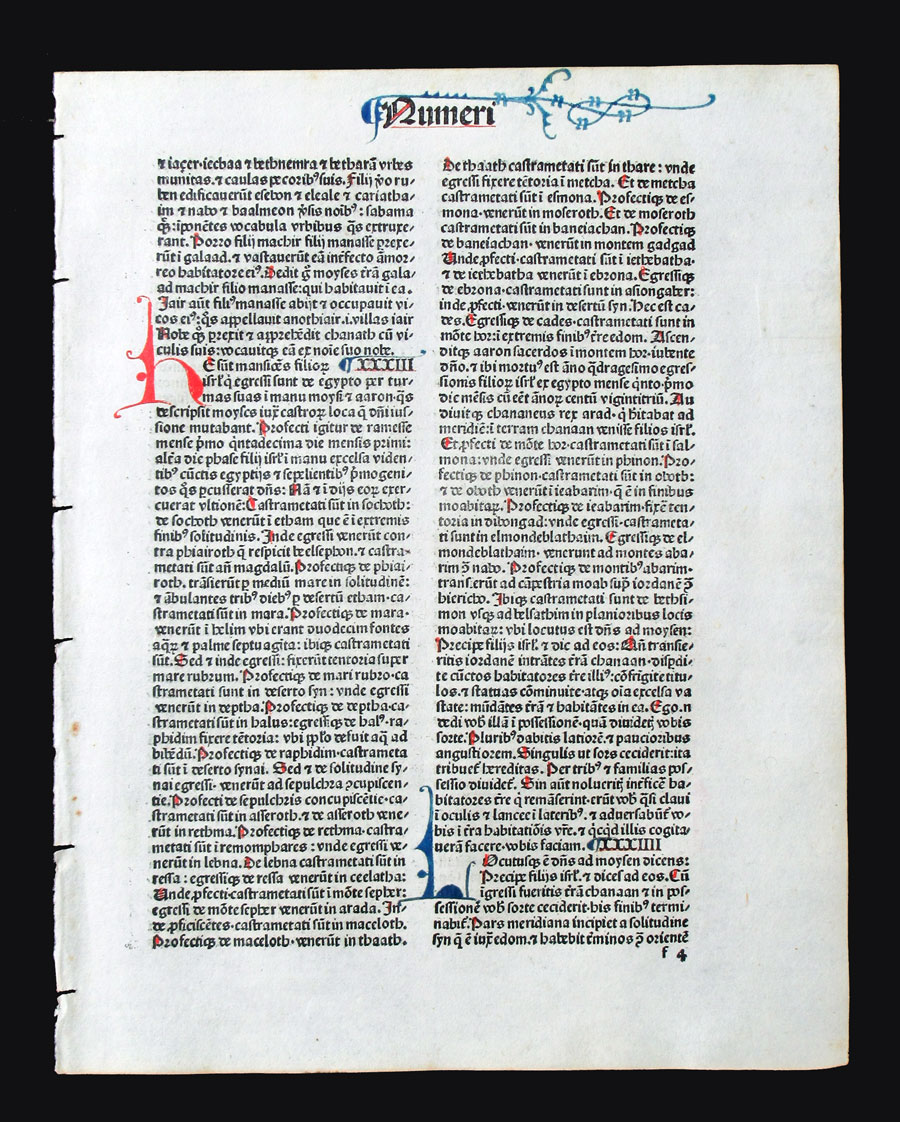 Numeri
⁊ iaçer·iecbaa ⁊ bethnemra ⁊ betharã vrbes
munitas.⁊ caulas pecoribꝰ suis. Filij ꝟo ru-
ben edificauerũt esebon ⁊ eleale ⁊ cariatha-
im ⁊ nabo ⁊ baalmeon ꝟsis noĩbꝰ : sabama
q̃ꝫ: ĩponẽtes vocabula vrbibus q̃s extruxe-
rant. Porro filij machir filij manasse ꝑrexe-
rũt ĩ galaad.⁊ vastauerũt eã ĩnterfecto ãmor-
reo habitatore eiꝰ. Dedit g̃ moyses tr̃ã gala
ad machir filio manasse: qui habitauit ĩ ea.
Jair aũt filꝰ manasse abijt ⁊ occupauit vi-
cos eiꝰ: q̃s appellauit anothiair.i.villas iair
Nobe q̃ꝫ ꝑrexit ⁊ appreħẽdit chanath cũ vi-
culis suis: vocauitqꝫ eã ex noĩe suo nobe.
HE sũt mansiões filioꝝ XXXIII
isrl' q̃ egressi sunt de egypto per tur-
mas suas ĩ manu moysi ⁊ aaron·q̃s
descripsit moyses iuxͭ castroꝝ loca q̃ dñi ius-
sione mutabant. Profecti igitur de ramesse
mense pͥmo q̃ntadecima die mensis primi:
altẽa die phase filij isrl' ĩ manu excelsa viden-
tibꝰ cũctis egyptijs ⁊ sepelientibꝰ pͥmogeni-
tos q̃s ꝑcusserat dñs: Nã ⁊ ĩ dijs eoꝝ exer-
cuerat vltionẽ: Castrametati sũt in sochoth:
de sochoth venerũt ĩ etham que ẽ ĩ extremis
finibꝰ solitudinis. Inde egressi venerũt con-
tra phiairoth q̃ respicit beelsephon.⁊ castra-
metati sũt añ magdalũ. Profectiqꝫ de phiai-
roth. trãsierũt ꝑ mediũ mare in solitudinẽ:
⁊ ãbulantes tribꝰ diebꝰ ꝑ desertũ etham·ca-
strametati sũt in mara. Profectiqꝫ de mara·
venerũt ĩ helim vbi erant duodecim fontes
aqꝝ ⁊ palme septuagĩta: ibiqꝫ castrametati
sũt. Sed ⁊ inde egressi: fixerũt tentoria super
mare rubrum. Profectiqꝫ de mari rubro·ca
strametati sunt in deserto syn: vnde egressi
venerũt in deptha. Profectiqꝫ de deptha·ca-
strametati sũt in halus: egressiqꝫ de halꝰ·ra-
phidim fixere tẽtoria: vbi ꝑpl'o defuit aq̃ ad
bibẽdũ. Profectiqꝫ de raphidim·castrameta
ti sũt ĩ deserto synai. Sed ⁊ de solitudine sy-
nai egressi·venerũt ad sepulchra ꝯcupiscen-
tie. Profecti de sepulchris concupiscẽtie·ca-
strametati sũt in asseroth.⁊ de asseroth vene-
rũt in rethma. Profectiqꝫ de rethma·castra-
metati sũt ĩ remomphares : vnde egressi ve-
nerũt in lebna. De lebna castrametati sũt in
ressa : egressiqꝫ de ressa venerũt in ceelatha:
Unde ꝓfecti·castrametati sũt ĩ mõte sepher:
egressi de mõte sepher venerũt in arada. In-
de ꝓficiscẽtes·castrametati sũt in maceloth.
Profectiqꝫ de maceloth·venerũt in thaath.
De thaath castrametati sũt in thare : vnde
egressi fixere tẽtoria ĩ metcha. Et de metcha
castrametati sũt ĩ esmona. Profectiqꝫ de es-
mona·venerũt in moseroth. Et de moseroth
castrametati sũt in baneiachan. Profectiqꝫ
de baneiachan· venerũt in montem gadgad
Unde ꝓfecti·castrametati sũt ĩ iethebatha·
⁊ de iethebatha venerũt ĩ ebrona. Egressiqꝫ
de ebrona·castrametati sunt in asiongaber:
inde ꝓfecti·venerũt in desertũ syn. Hec est ca-
des. Egressiqꝫ de cades·castrametati sunt in
mõte hor: ĩ extremis finibꝰ tr̃e edom. Ascen-
ditqꝫ aaron sacerdos ĩ montem hor·iubente
dño.⁊ ibi mortuꝰ est ãno q̃dragesimo egres-
sionis filioꝝ isrl' ex egypto mense q̃nto·pͥmo
die mẽsis cũ eẽt ãnoꝝ centũ vigintitriũ. Au
diuitqꝫ chananeus rex arad·q̃ ħitabat ad
meridiẽ: ĩ terram chanaan venisse filios isrl'.
Et ꝓfecti de mõte hor·castrametati sũt ĩ sal-
mona: vnde egressi venerũt in phinon. Pro-
fectiqꝫ de phinon·castrametati sũt in oboth:
⁊ de oboth venerũt ĩ ieabarim·q̃ ẽ in finibus
moabitaꝝ. Profectiqꝫ de ieabarim·fixẽe ten-
toria in dibongad: vnde egressi·castrameta-
ti sunt in elmondeblathaim. Egressiqꝫ de el-
mondeblathaim· venerunt ad montes aba-
rim ꝯ̃ nabo. Profectiqꝫ de montibꝰ abarim·
transierũt ad cãpestria moab supͣ iordanẽ ꝯ̃
hiericho. Ibiqꝫ castrametati sunt de bethsi-
mon vsqꝫ ad belsathim in planioribus locis
moabitaꝝ: vbi locutus est dñs ad moysen:
Precipe filijs isrl'.⁊ dic ad eos: Qñ transie-
ritis iordanẽ intrãtes tr̃ã chanaan·disꝑdi-
te cũctos habitatores tr̃e illiꝰ: cõfrĩgite titu-
los.⁊ statuas cõminuite·atqꝫ oĩa excelsa va
state: mũdãtes tr̃ã ⁊ habitãtes in ea. Ego.n
dedi vob̃ illã ĩ possessionẽ·quã diuidetꝭ vobis
sorte. Pluribꝰ dabitis latiorẽ.⁊ paucioribus
angustiorem. Singulis ut sors ceciderit: ita
tribuet̃ hereditas. Per tribꝰ ⁊ familias pos-
sessio diuidet̃. Sin aũt nolueritꝭ ĩterficẽ ha-
bitatores tr̃e q̃ remãserint·erũt vob̃ q̃si claui
ĩ oculis ⁊ lancee ĩ lateribꝰ.⁊ aduersabũt̃ vo-
bis ĩ tr̃a habitatiõis vr̃e.⁊ qͥcqͥd illis cogita-
uerã facere·vobis faciam. XXXIIII
LOcutusqꝫ ẽ dñs ad moysen dicens:
Precipe filijs isrl'.⁊ dices ad eos. Cũ
ĩgressi fueritis tr̃ã chanaan ⁊ in pos-
sessionẽ vob̃ sorte ceciderit·his finibꝰ termi-
nabit̃. Pars meridiana incipiet a solitudine
syn q̃ ẽ iuxͭ edom.⁊ habebit t̃minos ꝯ̃ orientẽ
f 4